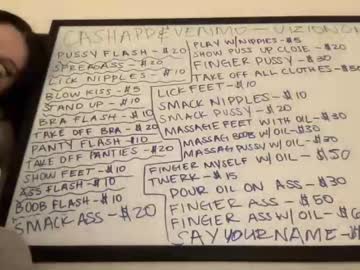 CASHAPP & VENIMO - VIZION
PUSSY FLASH - $20
SPREAD ASS - $20
LICK NIPPLES - $10
BLOW KISS - $5
STAND UP - $10
BRA FLASH - $10
TAKE OFF BRA - $20
PANTY FLASH - $10
TAKE OFF PANTIES - $20
SHOW FEET - $10
ASS FLASH - $10
BOOB FLASH - $10
SMACK ASS - $20
PLAY W/NIPPLES - $5
SHOW PUSS UP CLOSE - $20
FINGER PUSSY - $30
TAKE OFF ALL CLOTHES - $50
LICK FEET - $10
SMACK NIPPLES - $10
SMACK PUSSY - $20
MASSAGE FEET WITH OIL - $30
MASSAGE BOOB W/OIL - $30
MASSAGE PUSSY W/OIL - $30
FINGER MYSELF W/OIL - $50
TWERK - $15
POUR OIL ON ASS - $30
FINGER ASS - $50
FINGER ASS W/OIL - $6
SAY YOUR NAME - $